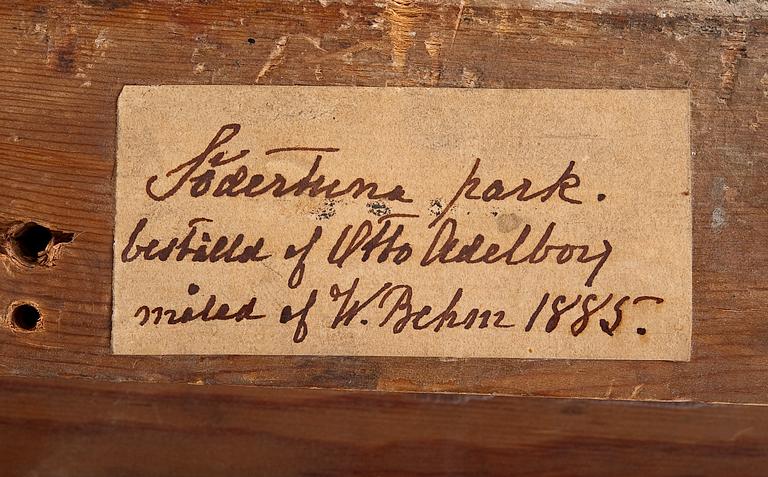 Södertuna park.
beställd af Otto Adelborg
målad af W. Behm 1885.